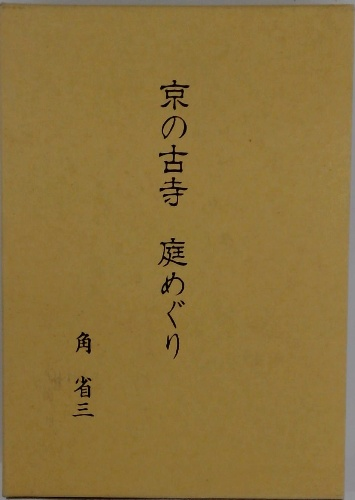 京の古寺　庭めぐり
角　省三